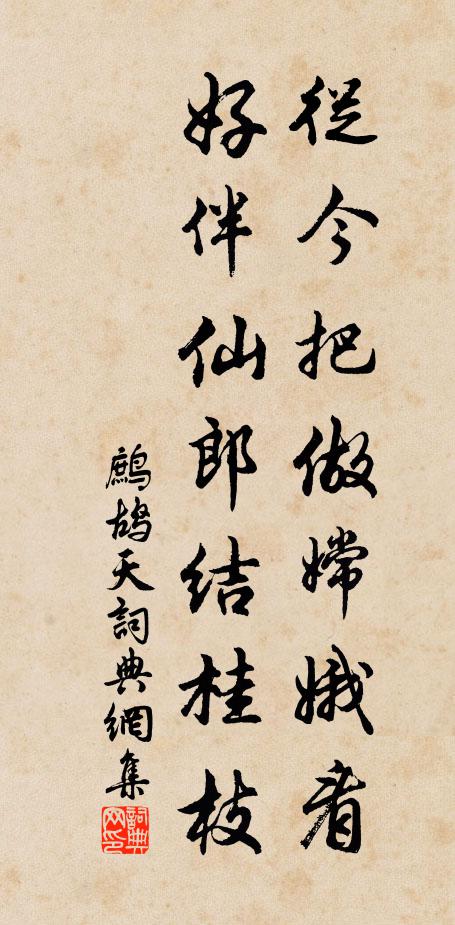 從今把做嫦娥看
好伴仙郎結桂枝
鷓鴣天詞典網集
詞典網印